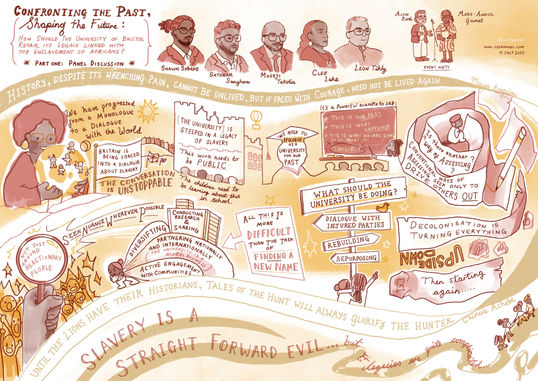 CONFRONTING THE PAST,
Shaping the Future:
HOW SHOULD THE UNIVERSITY OF BRISTOL
REPAIR ITS LEGACY LINKED WITH
THE ENSLAVEMENT OF AFRICANS?
PART ONE: PANEL DISCUSSION
SHAWN
SATHNAM
Sanghera
CLEO
Lake
LEON TIKLY
ALVIN
Birdi
MARIE-ANNICK
Gournet
EVENT HOSTS
11 JULY 2023
HISTORY, DESPITE ITS WRENCHING PAIN, CANNOT BE UNLIVED, BUT IF FACED WITH COURAGE, NEED NOT BE LIVED AGAIN
Maya Angelou
We have progressed
from a MONOLOGUE
to a DIALOGUE
with the World
BRITAIN IS
BEING FORCED
INTO A DIALOGUE
ABOUT SLAVERY
THE CONVERSATION
is UNSTOPPABLE
[THE UNIVERSITY] IS
STEEPED IN A
LEGACY OF
SLAVERY
This work needs to
be PUBLIC
The children need to
be learning about this
in school.
WE NEED TO
APOLOGISE
AS A
UNIVERSITY
FOR OUR
PAST
It's a Powerful example to say:
THIS IS OUR PAST
THIS IS WHAT HAPPENED
TANGIBLE
CONVENTIONAL WAYS OF
ASSESSING SEEK ONLY TO
DRIVE OTHERS OUT
WHAT SHOULD THE
UNIVERSITY BE DOING?
DIALOGUE WITH
INJURED PARTIES
REBUILDING
REPURPOSING
DECOLONISATION IS
TURNING EVERYTHING
UPSIDE
DOWN
Then starting
again.....
SEEK NUANCE WHEREVER POSSIBLE
CONDUCTING
RESEARCH
& SHARING
DIVERSIFYING
PARTNERING NATIONALLY
AND INTERNATIONALLY
ACTIVE ENGAGEMENT
WITH COMMUNITIES
ALL THIS IS
MORE
DIFFICULT
THAN THE TASK
OF
FINDING A
NEW NAME
NOT JUST
FOUND
REACTIONARY
PEOPLE
UNTIL THE LIONS HAVE THEIR HISTORIANS, TALES OF THE HUNT WILL ALWAYS GLORIFY THE HUNTER
Chinua Achebe
SLAVERY IS A
STRAIGHT FORWARD EVIL... but